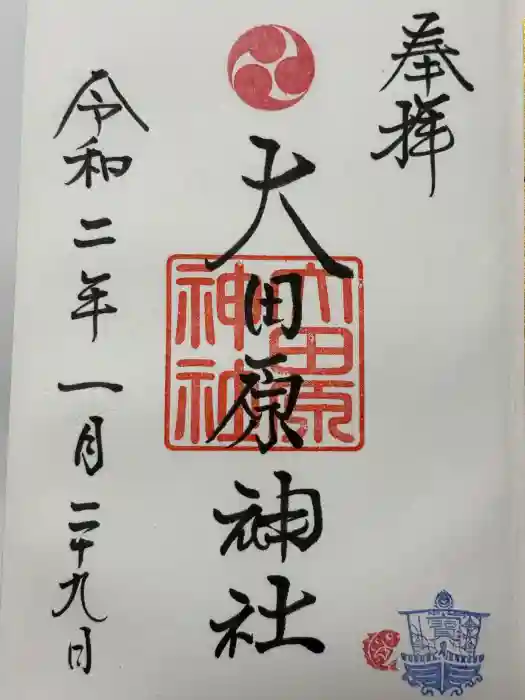 奉拝
大田原神社
大田原神社
令和二年一月二十九日
寳